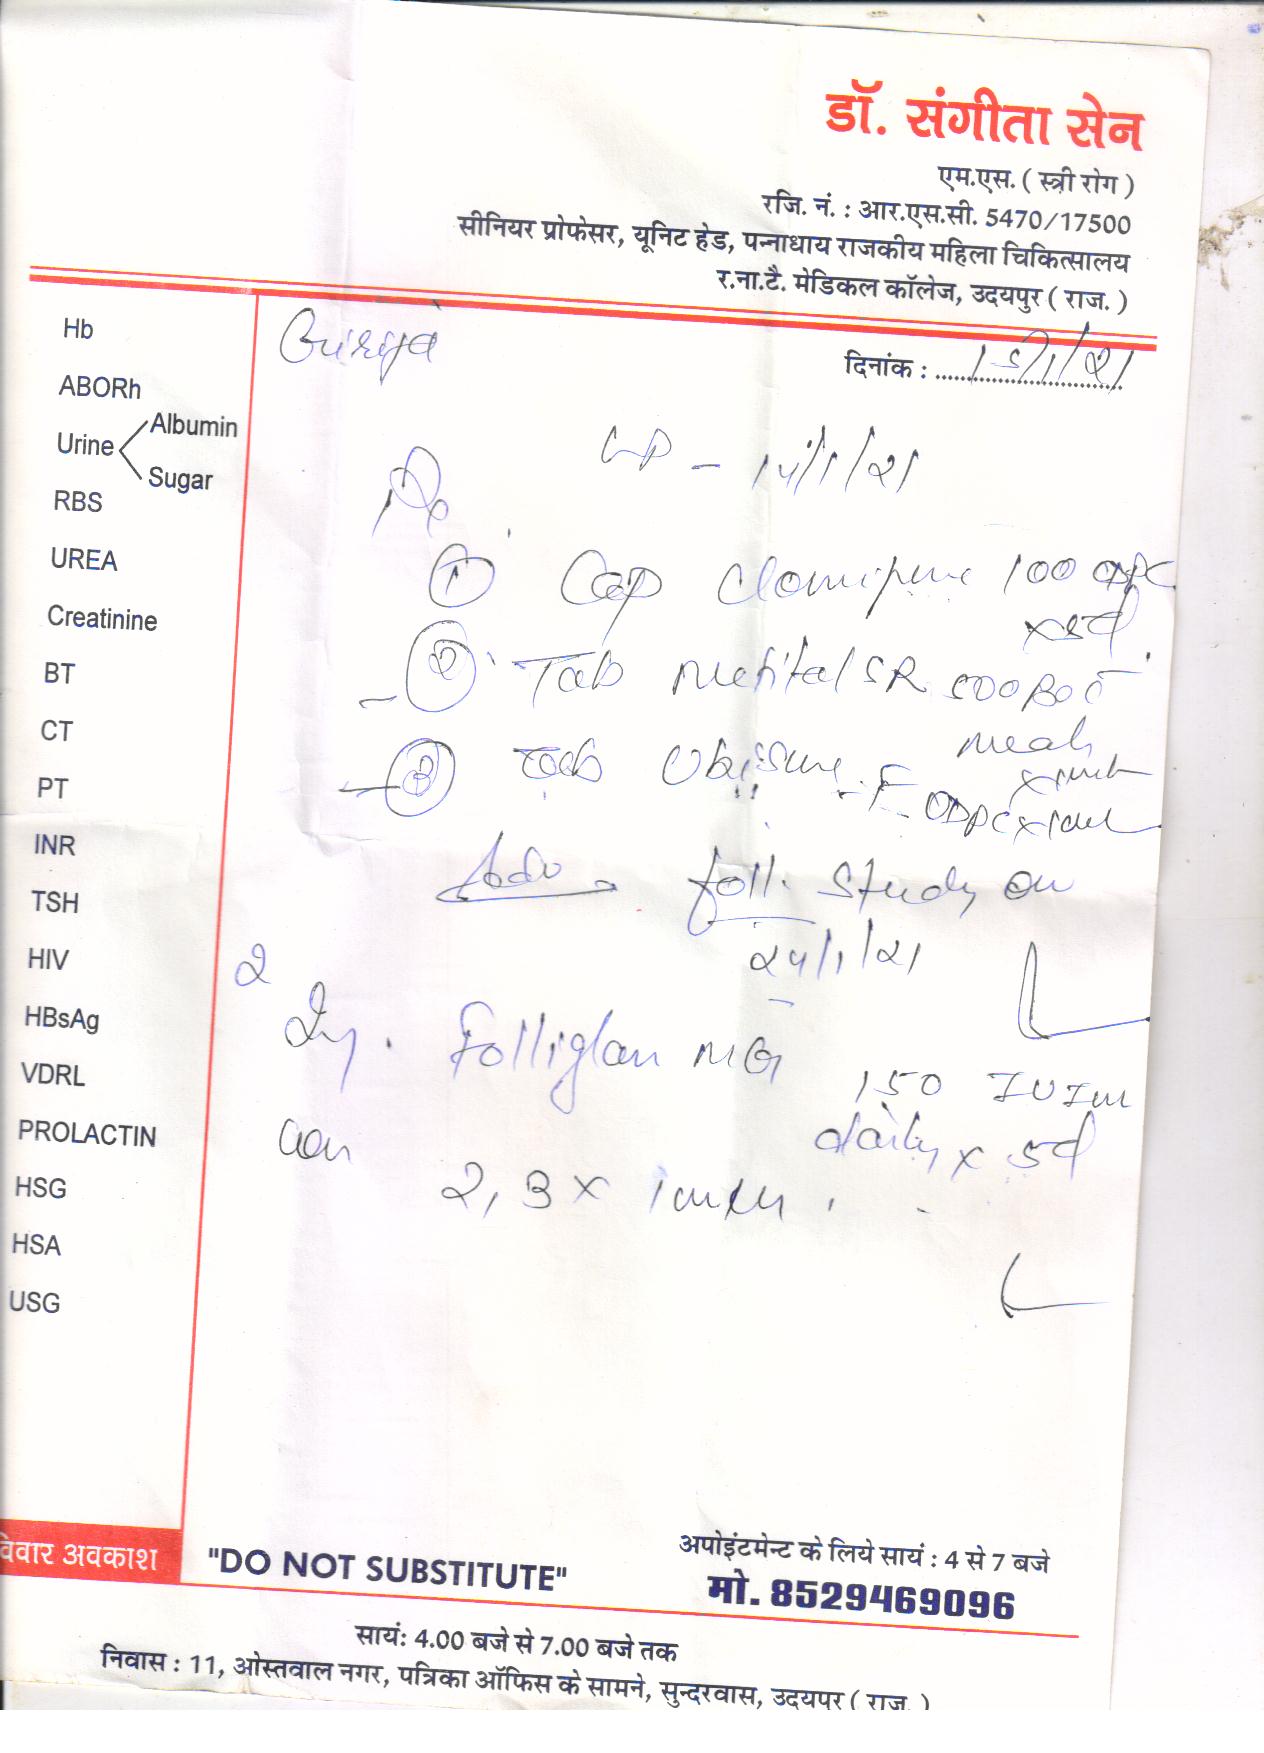 डॉ. संगीता सेन
एम.एस. ( स्त्री रोग )
रजि. नं. : आर.एस.सी. 5470/17500
सीनियर प्रोफेसर, यूनिट हेड, पन्नाधाय राजकीय महिला चिकित्सालय
र.ना.टै. मेडिकल कॉलेज, उदयपुर ( राज. )
दिनांक : 15/1/21
Hb
ABORh
Urine Albumin
Sugar
RBS
UREA
Creatinine
BT
CT
PT
INR
TSH
HIV
HBsAg
VDRL
PROLACTIN
HSG
HSA
USG
- 14/1/21
Rx
1 Cap 100
2 Tab SR 500
meals
3 Tab F
Adv foll. study on
24/1/21
2
Inj. MG 150 IU IM
daily x 5d
2, 3 x
विवार अवकाश
"DO NOT SUBSTITUTE"
अपोइंटमेन्ट के लिये सायं : 4 से 7 बजे
मो. 8529469096
सायं: 4.00 बजे से 7.00 बजे तक
निवास : 11, ओस्तवाल नगर, पत्रिका ऑफिस के सामने, सुन्दरवास, उदयपुर ( राज. )